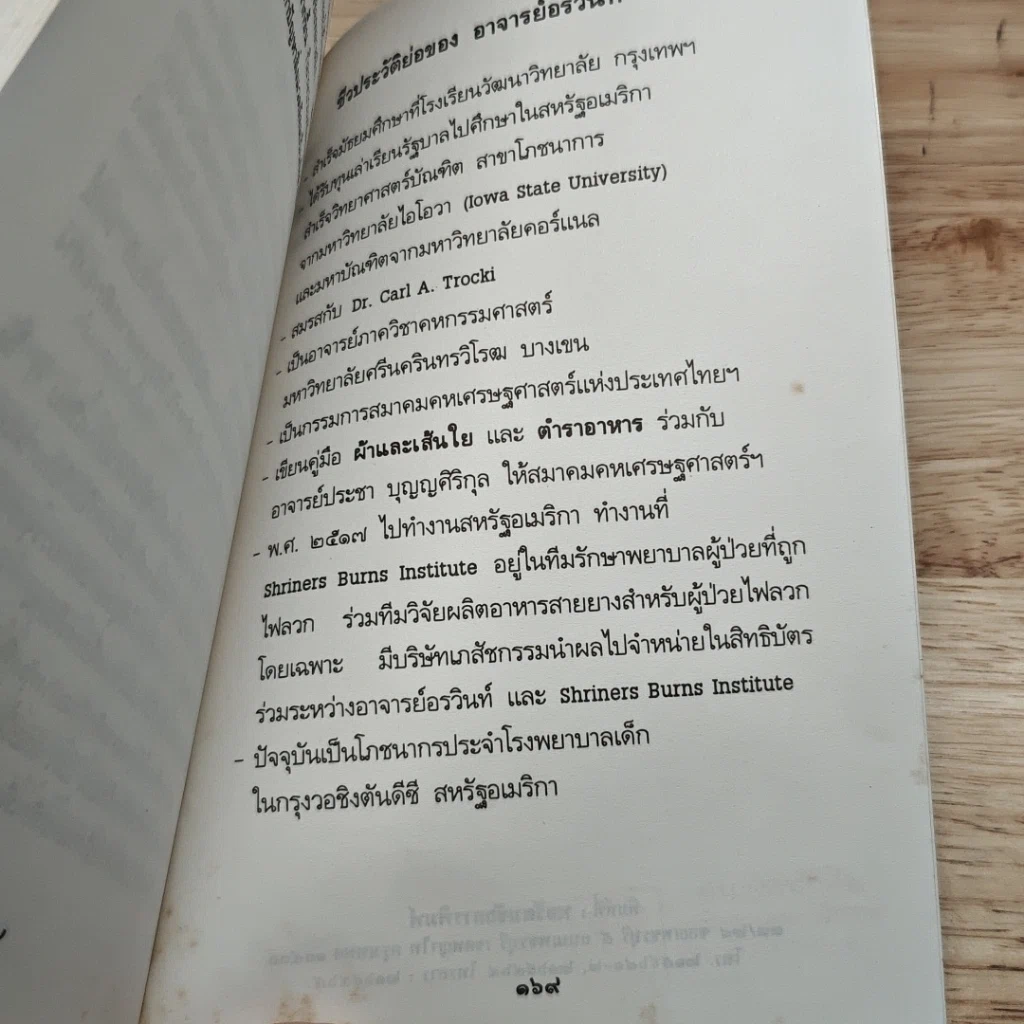 ชีวประวัติย่อของ อาจารย์อรวินท์
- สำเร็จมัธยมศึกษาที่โรงเรียนวัฒนาวิทยาลัย กรุงเทพฯ
- ได้รับทุนเล่าเรียนรัฐบาลไปศึกษาในสหรัฐอเมริกา
สำเร็จวิทยาศาสตร์บัณฑิต สาขาโภชนาการ
จากมหาวิทยาลัยไอโอวา (Iowa State University)
และมหาบัณฑิตจากมหาวิทยาลัยคอร์แนล
- สมรสกับ Dr. Carl A. Trocki
- เป็นอาจารย์ภาควิชาคหกรรมศาสตร์
มหาวิทยาลัยศรีนครินทรวิโรฒ บางเขน
- เป็นกรรมการสมาคมคหเศรษฐศาสตร์แห่งประเทศไทยฯ
- เขียนคู่มือ ผ้าและเส้นใย และ ตำราอาหาร ร่วมกับ
อาจารย์ประชา บุญญศิริกุล ให้สมาคมคหเศรษฐศาสตร์ฯ
- พ.ศ. ๒๕๑๗ ไปทำงานสหรัฐอเมริกา ทำงานที่
Shriners Burns Institute อยู่ในทีมรักษาพยาบาลผู้ป่วยที่ถูก
ไฟลวก ร่วมทีมวิจัยผลิตอาหารสายยางสำหรับผู้ป่วยไฟลวก
โดยเฉพาะ มีบริษัทเภสัชกรรมนำผลไปจำหน่ายในสิทธิบัตร
ร่วมระหว่างอาจารย์อรวินท์ และ Shriners Burns Institute
- ปัจจุบันเป็นโภชนากรประจำโรงพยาบาลเด็ก
ในกรุงวอชิงตันดีซี สหรัฐอเมริกา
๑๖๙